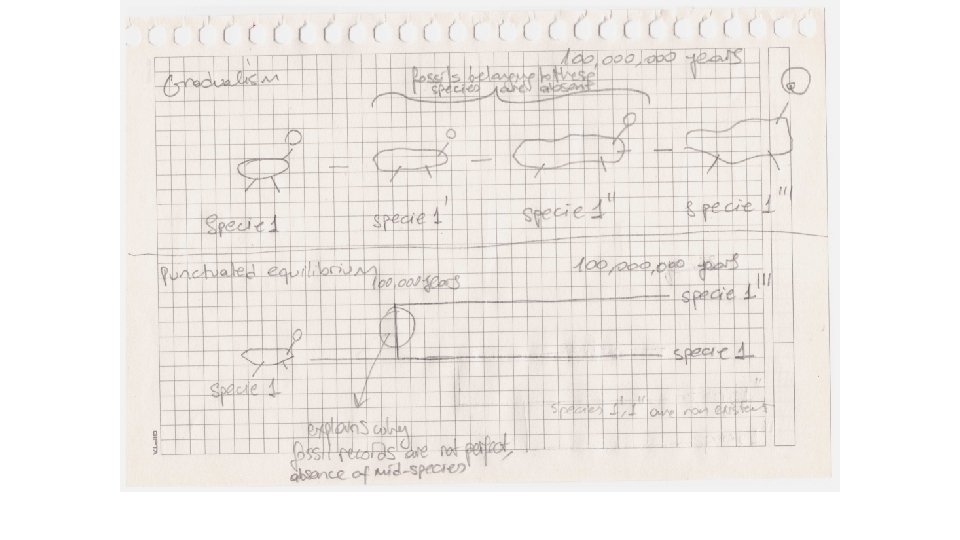 100,000,000 years
Gradualism
fossils belonging to these
species are absent
Specie 1
specie 1'
specie 1''
specie 1'''
Punctuated equilibrium
100,000,000 years
100,000 years
specie 1'''
specie 1
specie 1
species 1', 1'' are non existent
explains why
fossil records are not perfect,
absence of mid-species